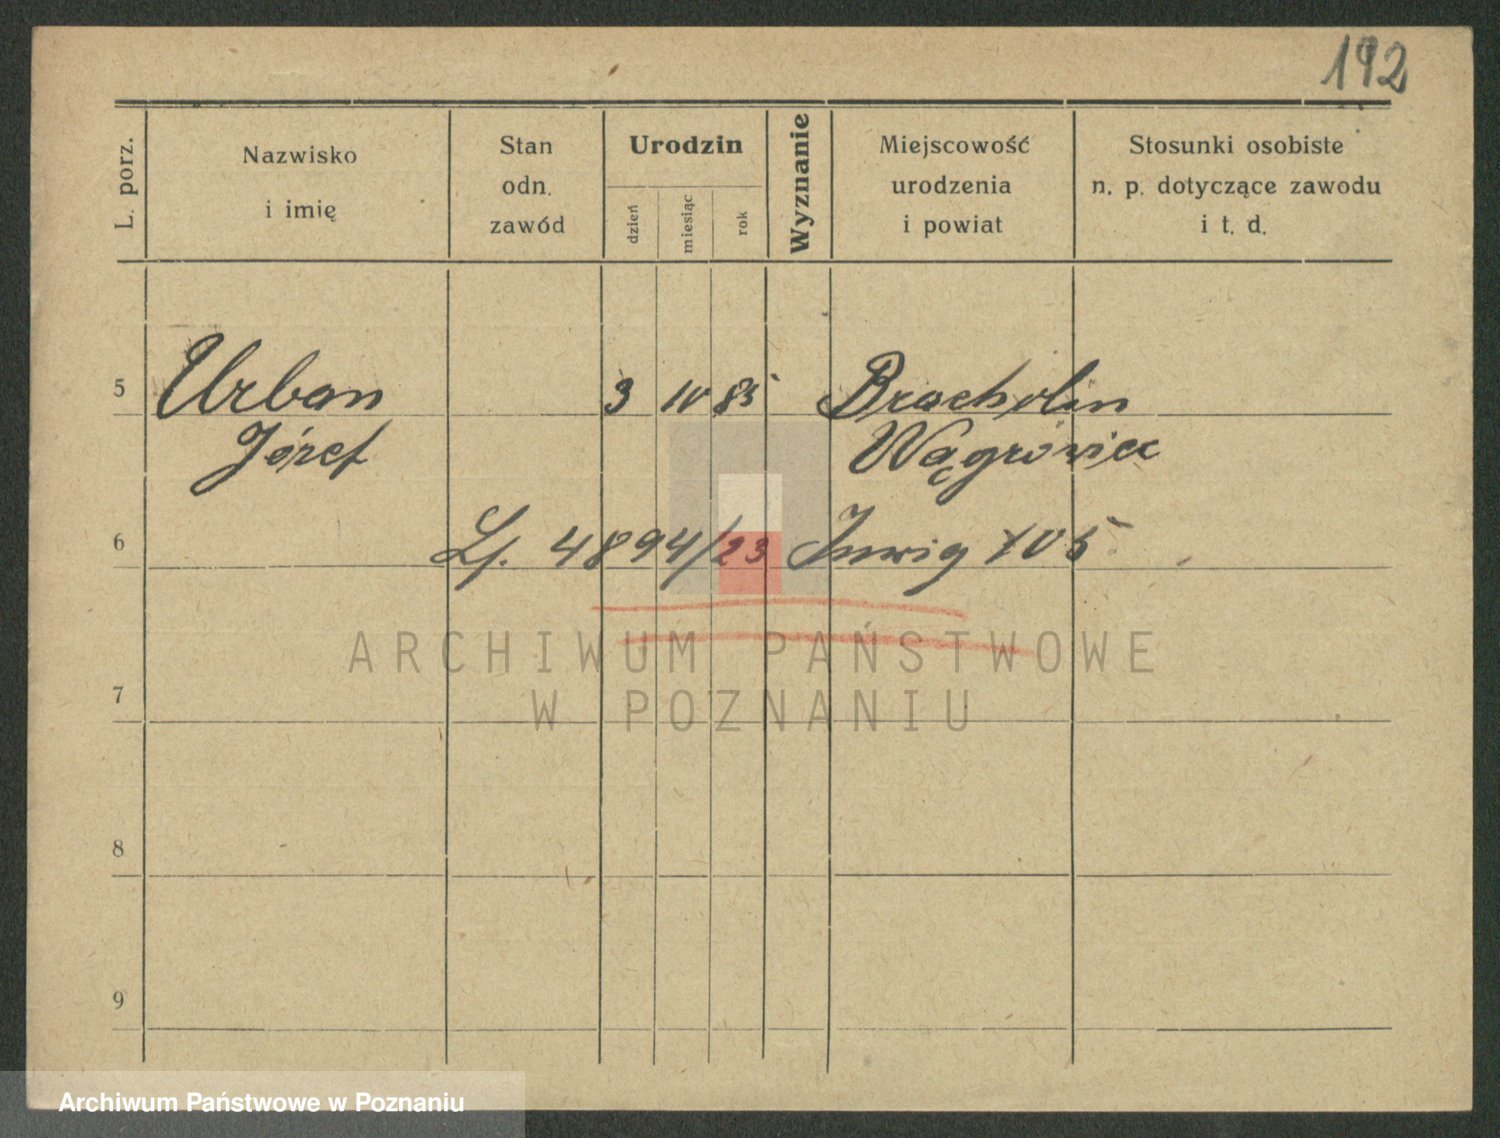 192
L. porz.
Nazwisko
i imię
Stan
odn.
zawód
Urodzin
dzień
miesiąc
rok
Wyznanie
Miejscowość
urodzenia
i powiat
Stosunki osobiste
n. p. dotyczące zawodu
i t. d.
5 Urban 3 10 85 Bracholin
Józef Wągrowiec
6 4894/23 105
7
8
9
ARCHIWUM PAŃSTWOWE
W POZNANIU
Archiwum Państwowe w Poznaniu